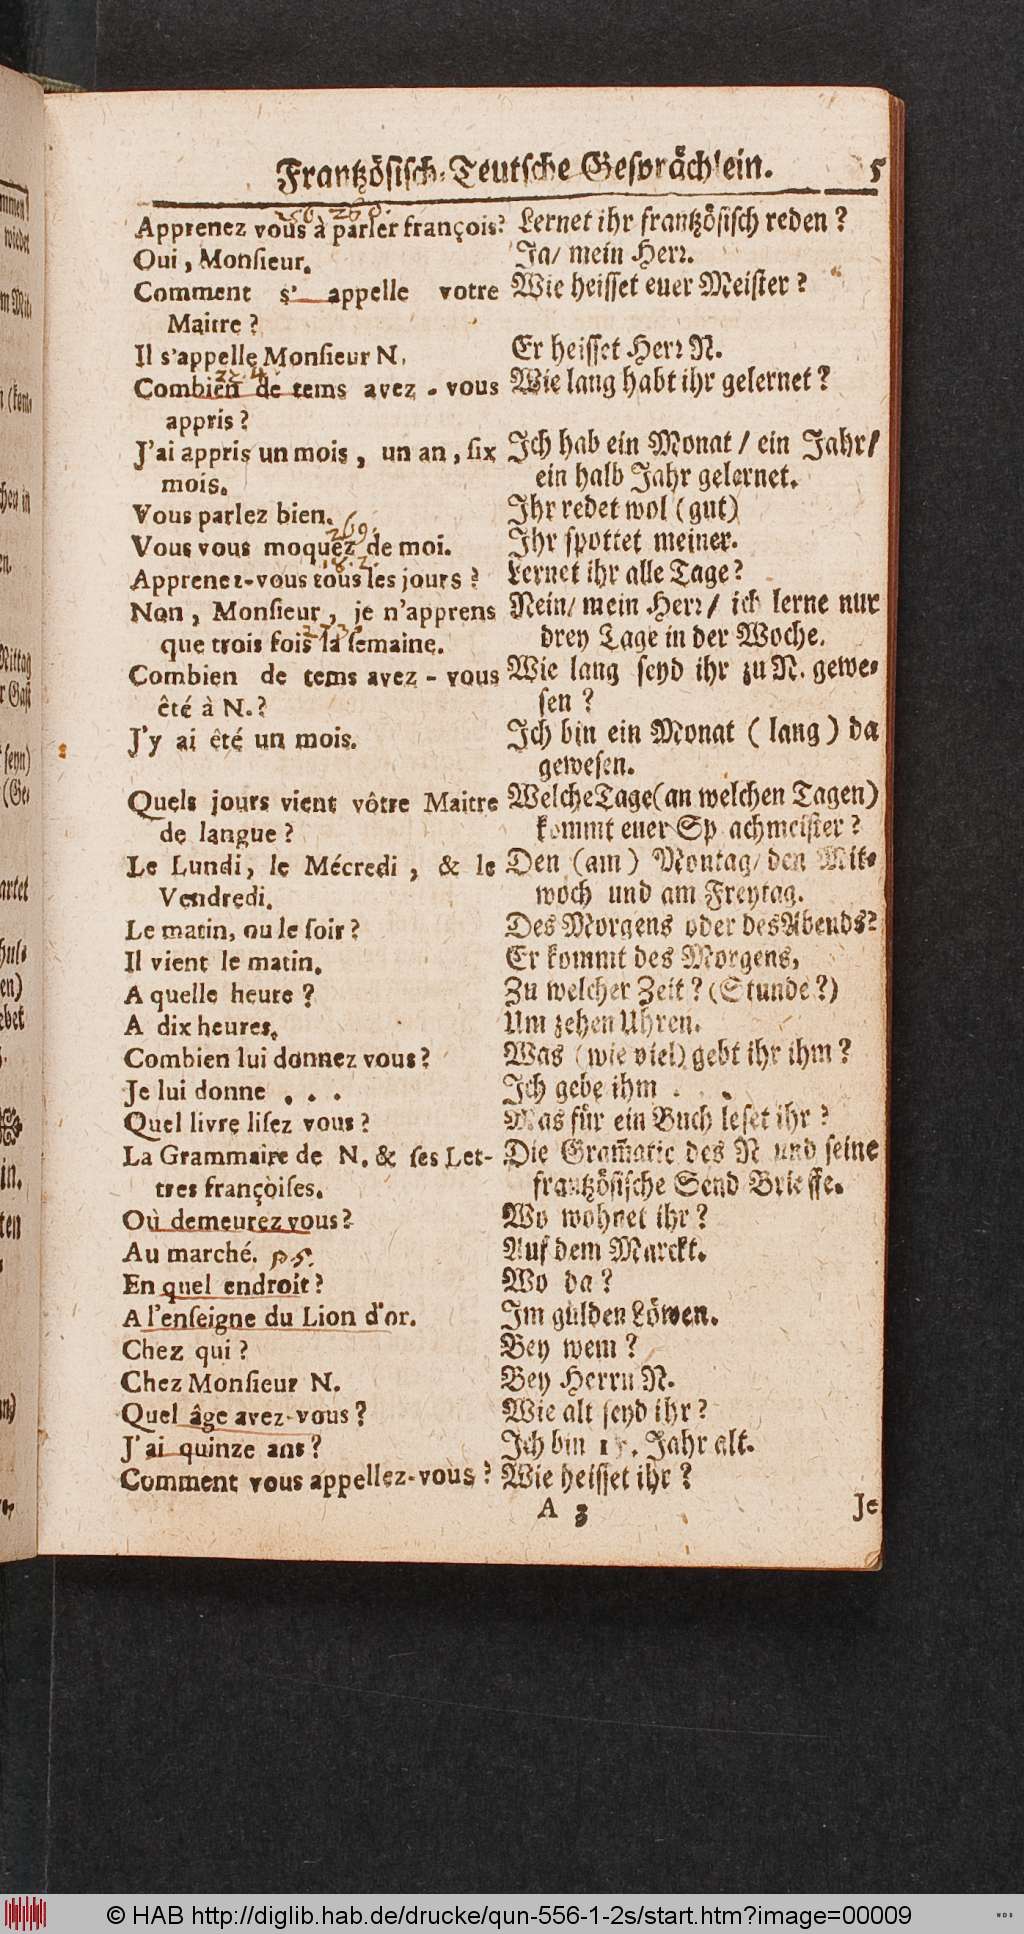 Frantzösisch-Teutsche Gesprächlein. 5
Apprenez vous à parler françois?
Oui, Monſieur.
Comment s' appelle votre
Maitre?
Il s'appelle Monſieur N.
Combien de tems avez-vous
appris?
J'ai appris un mois, un an, ſix
mois.
Vous parlez bien.
Vous vous moquez de moi.
Apprenez-vous tous les jours?
Non, Monſieur, je n'apprens
que trois fois la ſemaine.
Combien de tems avez-vous
êté à N.?
J'y ai êté un mois.
Quels jours vient vôtre Maitre
de langue?
Le Lundi, le Mécredi, & le
Vendredi.
Le matin, ou le ſoir?
Il vient le matin.
A quelle heure?
A dix heures.
Combien lui donnez vous?
Je lui donne . . .
Quel livre liſez vous?
La Grammaire de N. & ſes Let-
tres françoiſes.
Où demeurez vous?
Au marché. p. 5.
En quel endroit?
A l'enſeigne du Lion d'or.
Chez qui?
Chez Monſieur N.
Quel âge avez-vous?
J'ai quinze ans?
Comment vous appellez-vous?
Lernet ihr frantzöſiſch reden?
Ja/ mein Herꝛ.
Wie heiſſet euer Meiſter?
Er heiſſet Herꝛ N.
Wie lang habt ihr gelernet?
Ich hab ein Monat/ ein Jahr/
ein halb Jahr gelernet.
Ihr redet wol (gut)
Ihr ſpottet meiner.
Lernet ihr alle Tage?
Nein/ mein Herꝛ/ ich lerne nur
drey Tage in der Woche.
Wie lang ſeyd ihr zu N. gewe-
ſen?
Ich bin ein Monat (lang) da
geweſen.
Welche Tage (an welchen Tagen)
kommt euer Sp achmeiſter?
Den (am) Montag/ den Mit-
woch und am Freytag.
Des Morgens oder des Abends?
Er kommt des Morgens,
Zu welcher Zeit? (Stunde?)
Um zehen Uhren.
Was (wie viel) gebt ihr ihm?
Ich gebe ihm . . .
Was für ein Buch leſet ihr?
Die Gram̄atic des N und ſeine
frantzöſiſche Send Brieffe.
Wo wohnet ihr?
Auf dem Marckt.
Wo da?
Im gulden Löwen.
Bey wem?
Bey Herrn N.
Wie alt ſeyd ihr?
Ich bin 15. Jahr alt.
Wie heiſſet ihr?
A 3 Je
© HAB http://diglib.hab.de/drucke/qun-556-1-2s/start.htm?image=00009